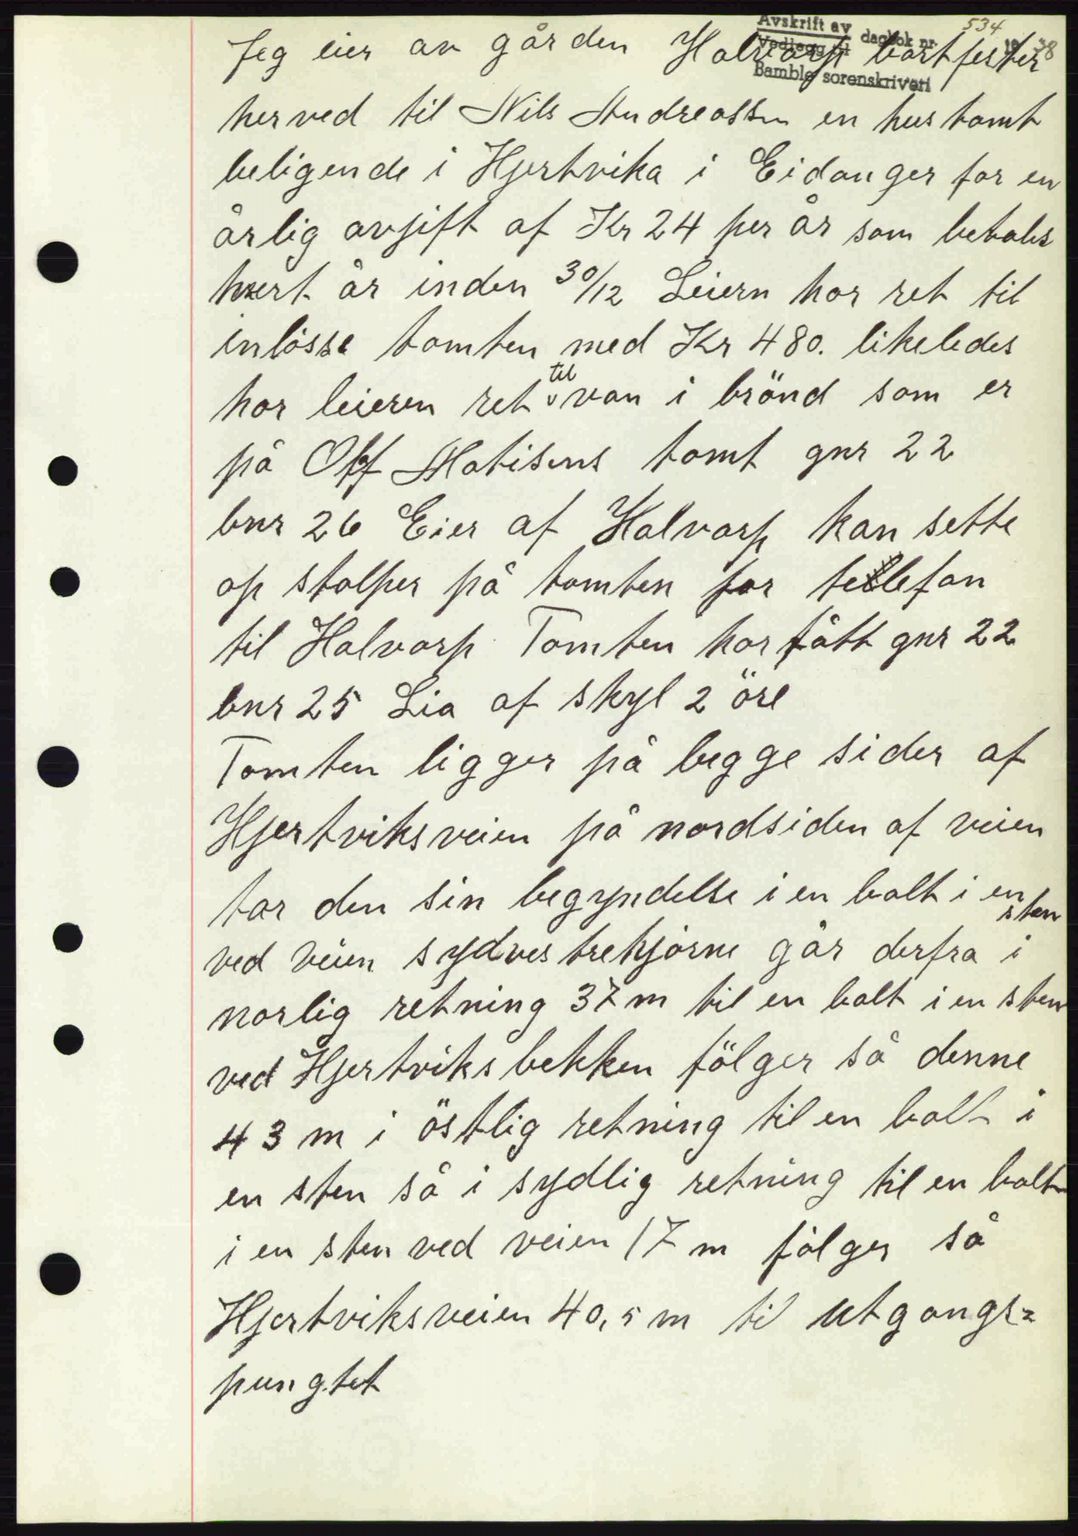 Avskrift av
Vedlegg til dagbok nr. 534 19 38
Bamble sorenskriveri
Jeg eier av gården Halvarp bortfester
herved til Nils Andreassen en hustomt
beligende i Hjertvika i Eidanger for en
årlig avgift af Kr 24 per år som betales
hvert år inden 30/12 Leiern har ret til
inlösse tomten med Kr 480. likeledes
har leieren ret til van i brönd som er
på Olf Matisens tomt gnr 22
bnr 26 Eier af Halvarp kan sette
op stolper på tomten for tellefon
til Halvarp Tomten har fått gnr 22
bnr 25 Lia af skyl 2 öre
Tomten ligger på begge sider af
Hjertviksveien på nordsiden af veien
tar den sin begyndelse i en bolt i en sten
ved veien sydvestrehjörne går derfra i
norlig retning 37 m til en bolt i en sten
ved Hjertviksbekken fölger så denne
43 m i östlig retning til en bolt i
en sten så i sydlig retning til en bolt
i en sten ved veien 17 m fölger så
Hjertviksveien 40,5 m til utgangs=
pungtet